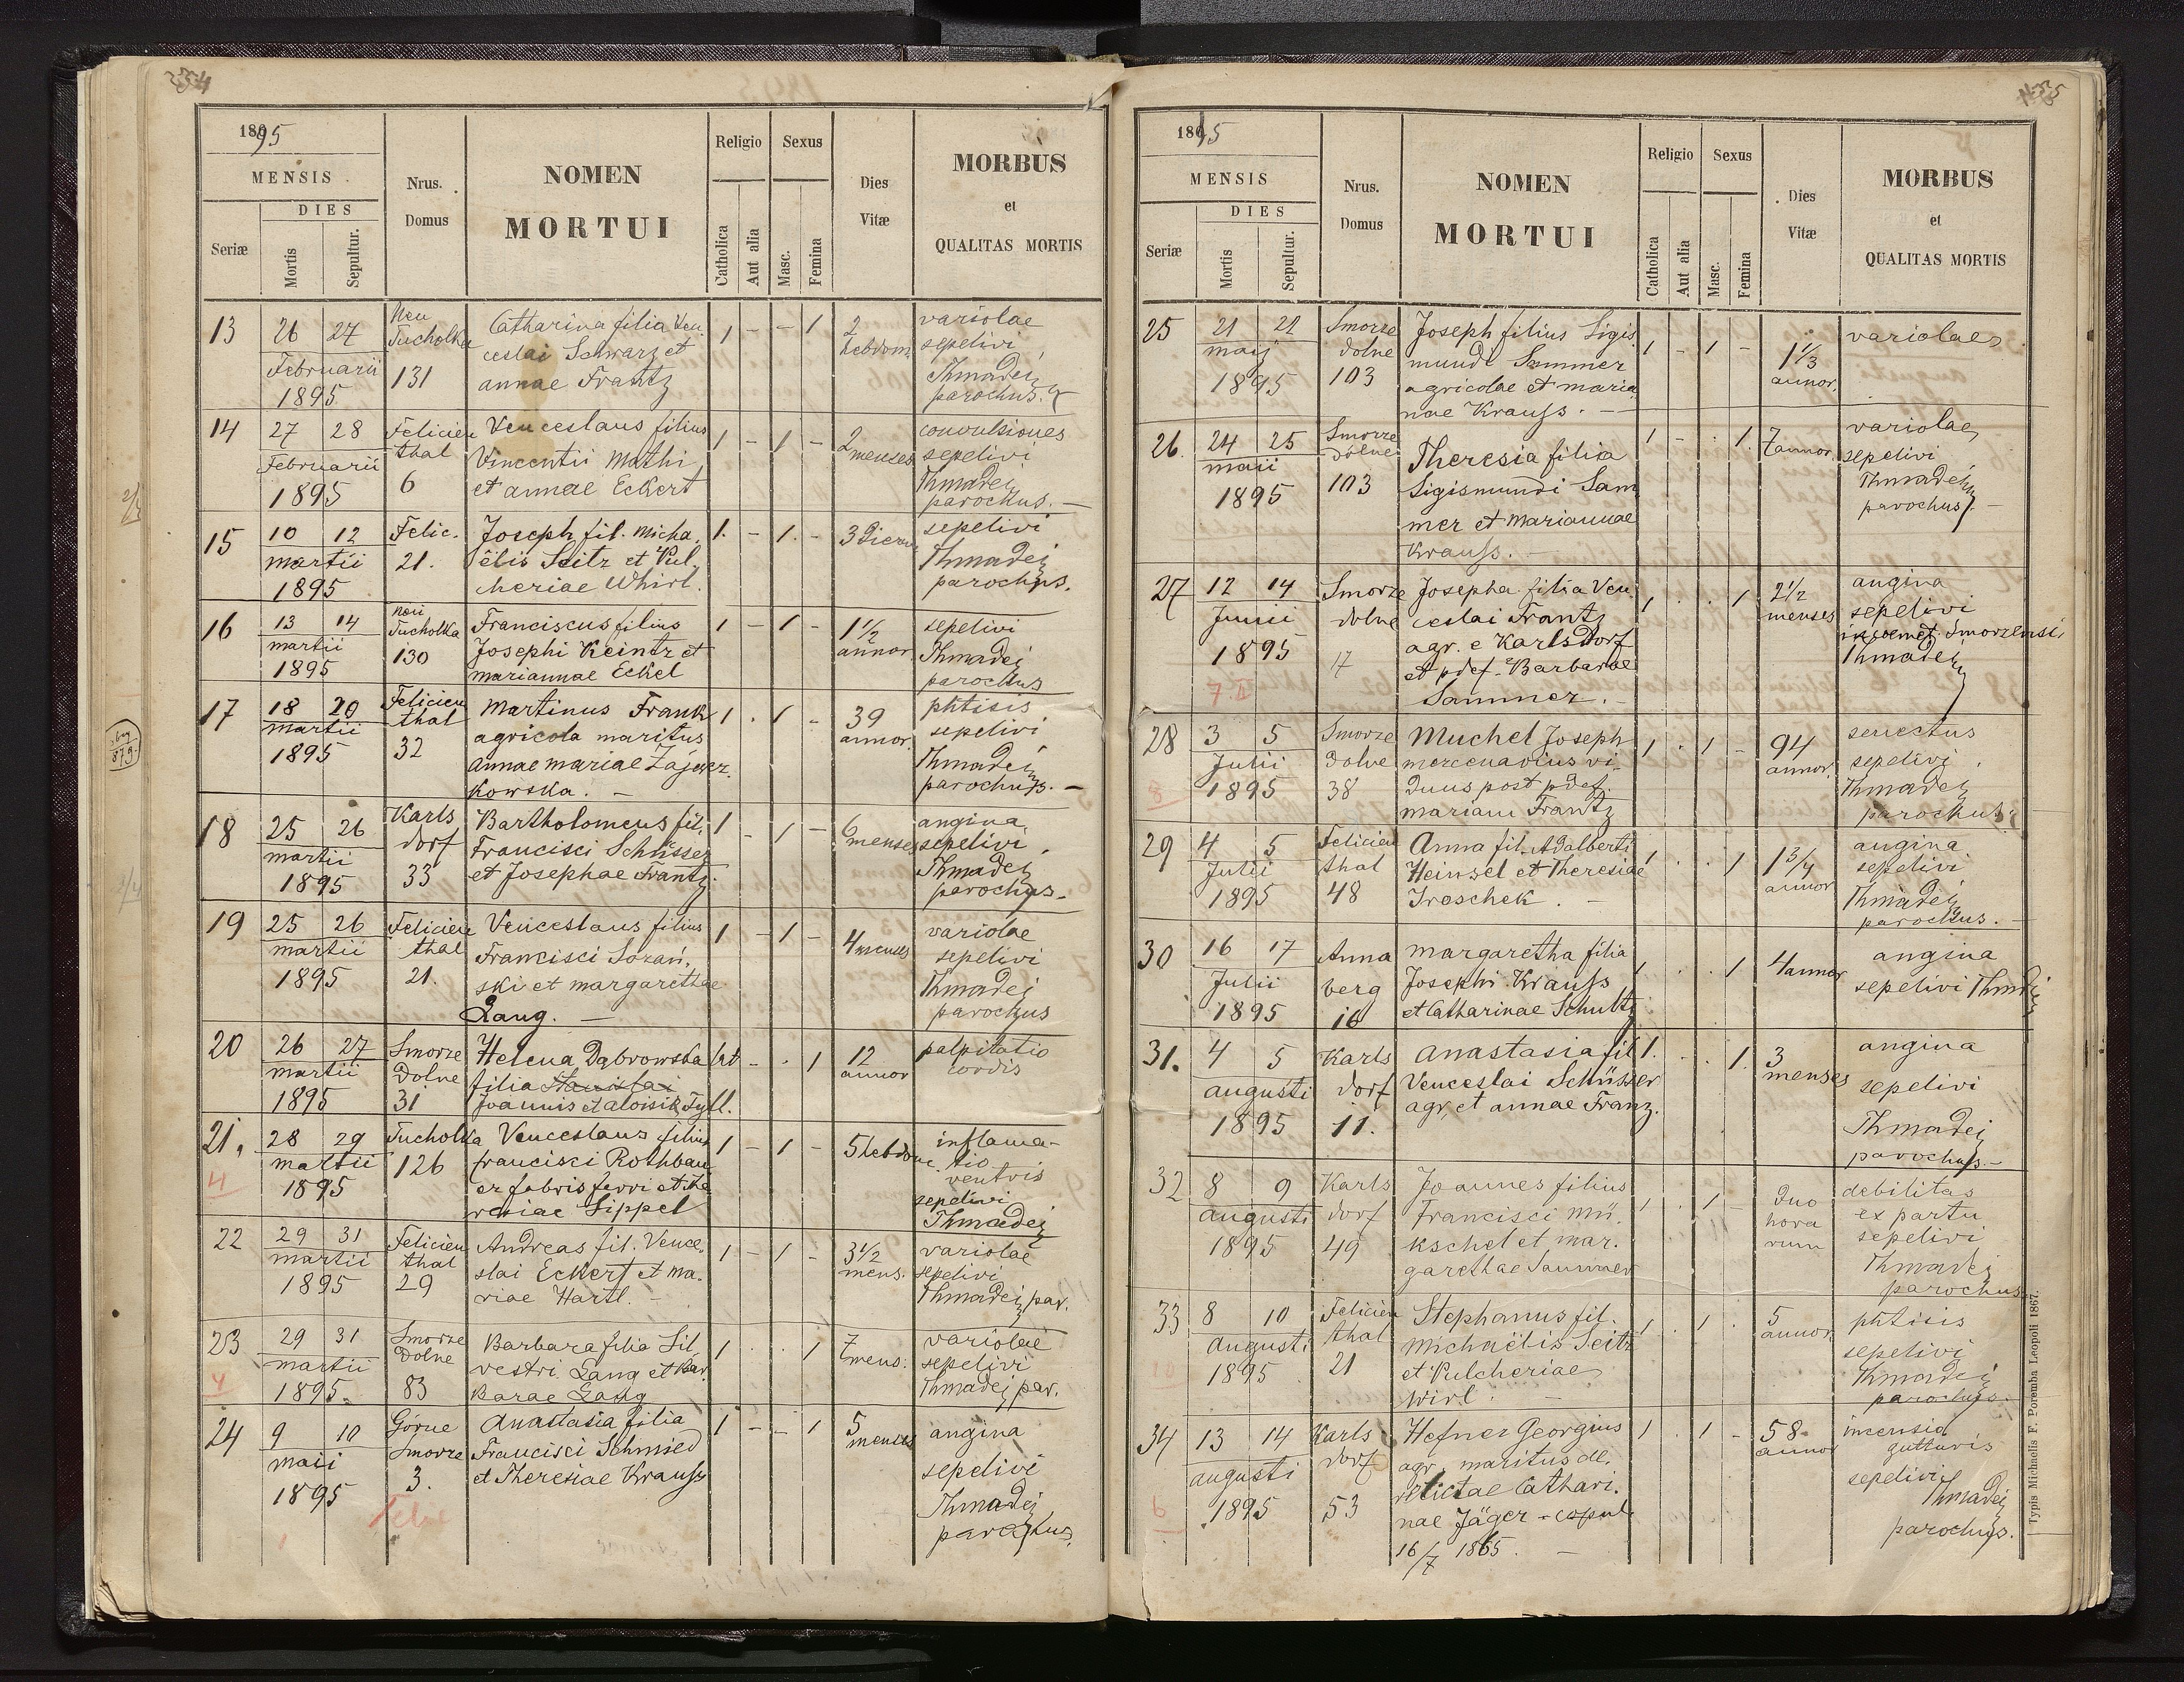 334
1895
MENSIS
DIES
Seriæ
Mortis
Sepultur.
Nrus.
Domus
NOMEN
MORTUI
Religio
Sexus
Catholica
Aut alia
Masc.
Femina
Dies
Vitæ
MORBUS
et
QUALITAS MORTIS
13 26 27 Neu Tucholka Catharina filia Ven. 1 - - 1 2 variolae
ceslai Schwarz et hebdom. sepelivi
Februarii 131 annae Frantz Thmadej
1895 parochus.
14 27 28 Felicien Venceslaus filius 1 - 1 - 2 convulsiones
thal Vincentii Mathi menses sepelivi
Februarii 6 et annae Eckert Thmadej
1895 parochus. -
15 10 12 Felic. Joseph fil. Micha. 1. - 1. - 3 dierum sepelivi
martii 21. ëlis Seitz et Pul. Thmadej
1895 cheriae Whirl. parochus.
16 13 14 Neu Tucholka Franciscus filius 1 - 1 - 1 1/2 sepelivi
martii 130 Josephi Keintz et annor Thmadej
1895 mariannae Eckel parochus
17 18 20 Felicien Martinus Frank 1 . 1 - 39 phtisis
martii thal agricola maritus annor. sepelivi
1895 32 Annae mariae Zającz. Thmadej
kowska. - parochus. -
18 25 26 Karls Bartholomeus fil. 1 - 1 - 6 angina
martii dorf Francisci Schüsser menses sepelivi
1895 33 et Josephae Frantz. Thmadej
parochus.
19 25 26 Felicien Venceslaus filius 1 - 1 - variolae
martii thal Francisci Sozań. 4 menses sepelivi
1895 21. ski et margarethae Thmadej
Lang. - parochus
20 26 27 Smorze Helena Dąbrowska lat - . 1 12 palpitatio
martii Dolne filia Stanislai annor cordis
1895 31 Joannis et Aloisiae Tyll.
21. 28 29 Tucholka Venceslaus filius 1 - 1 - 5 hebdom. inflama-
4 martii 126 francisci Rothbau tio
1895 er fabris ferri et The ventris
resiae Lippel sepelivi
Thmadej
22 29 31 Felicien Andreas fil. Vence. 1 - 1 - 3 1/2 variolae
martii thal slai Eckert et Ma. mens. sepelivi
1895 29 riae Hartl. - Thmadej par.
23 29 31 Smorze Barbara filia Sil 1 . . 1 7 variolae
martii Dolne vestri Lang et Bar mens. sepelivi
4 1895 83 barae Lang Thmadej par.
24 9 10 Górne Anastasia filia 1 - - 1 5 angina
maii Smorze Francisci Schmied menses sepelivi
1895 3. et Theresiae Krauss Thmadej
parochus.
1895
MENSIS
DIES
Seriæ
Mortis
Sepultur.
Nrus.
Domus
NOMEN
MORTUI
Religio
Sexus
Catholica
Aut alia
Masc.
Femina
Dies
Vitæ
MORBUS
et
QUALITAS MORTIS
25 21 22 Smorze Joseph filius Sigis 1 - 1 - 1 1/3 variolae
maij dolne mundi Sammer annor.
1895 103 agricolae et maria
nae Krauss. -
26. 24 25 Smorze dolne Theresia filia 1 - . 1. 7 annor. variolae
maii 103 Sigismundi Sam sepelivi
1895 mer et Mariannae Thmadej
Krauss. - parochus. -
27 12 14 Smorze Josepha filia Ven. 1 . . 1 2 1/2 angina
Junii dolne ceslai Frantz menses sepelivi
1895 17 agr. e Karlsdorf in coemet. Smorzensi
et pdef. Barbarae Thmadej
Sammer. -
28 3 5 Smorze Muchel Joseph 1 . 1 - 94 senectus
Julii dolne mercenarius vi annor. sepelivi
8 1895 38 duus post pdef. Thmadej
mariam Frantz parochus
29 4 5 Felicien Anna fil. Adalberti 1 . . 1 1 3/4 angina
Julii thal Heinsel et Theresiae annor sepelivi
1895 48 Iroschek. - Thmadej
parochus. -
30 16 17 Anna Margaretha filia 1 . . 1 4 annor angina
Julii berg Josephi Krauss sepelivi Thmadej
1895 16 et Catharinae Schultz
31. 4 5 Karls Anastasia fil 1. . . 1. 3 angina
augusti dorf Venceslai Schüsser menses sepelivi
1895 11. agr. et annae Franz. Thmadej
parochus. -
32 8 9 Karls Joannes filius 1 . 1 - Duo debilitas
augusti dorf Francisci Mü. hora ex partu
1895 49 kschel et Mar. rum sepelivi
garethae Sammer Thmadej
parochus
33 8 10 Felicien Stephanus fil. 1 . 1 . 5 phtisis
augusti thal Michaëlis Seitz annor. sepelivi
1895 21 et Pulcheriae Thmadej
Wirl. - parochus.
34 13 14 Karls Hefner Georgius 1 . 1 - 58 incensio
augusti dorf agr. maritus de. annor gutturis
6 1895 53 relictae Cathari. sepelivi
nae Jäger - copul. Thmadej
16/7 1865. - parochus.
Typis Michaelis F. Poremba Leopoli 1867.